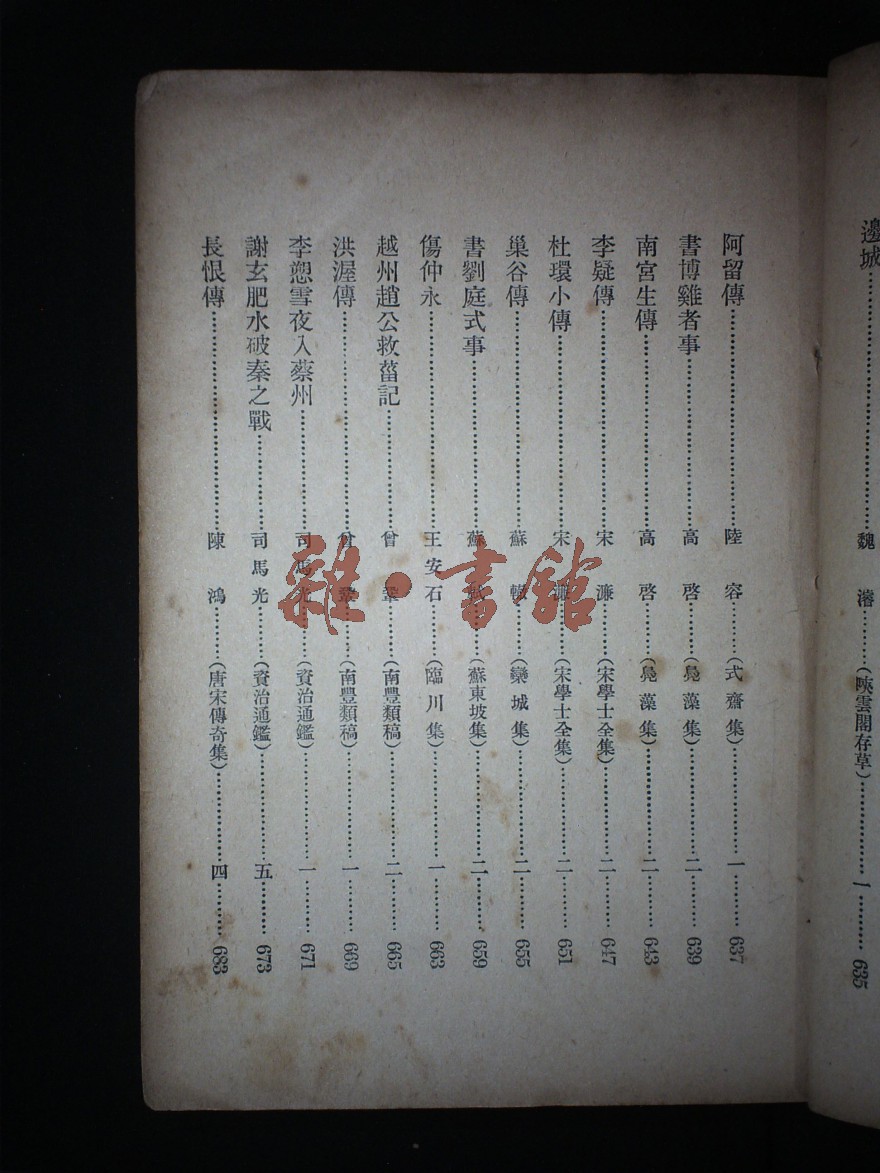 邊城………………………魏　濬………(峽雲閣存草)………………一………635
阿留傳………………………陸　容………(式齋集)………………一………637
書博雞者事………………………高　啓………(鳧藻集)………………二………639
南宮生傳………………………高　啓………(鳧藻集)………………二………643
李疑傳………………………宋　濂………(宋學士全集)………………二………647
杜環小傳………………………宋　濂………(宋學士全集)………………二………651
巢谷傳………………………蘇　轍………(欒城集)………………二………655
書劉庭式事………………………蘇　軾………(蘇東坡集)………………二………659
傷仲永………………………王安石………(臨川集)………………一………663
越州趙公救菑記………………………曾　鞏………(南豐類稿)………………二………665
洪渥傳………………………曾　鞏………(南豐類稿)………………一………669
李愬雪夜入蔡州………………………司馬光………(資治通鑑)………………一………671
謝玄肥水破秦之戰………………………司馬光………(資治通鑑)………………五………673
長恨傳………………………陳　鴻………(唐宋傳奇集)………………四………683
雜·書館